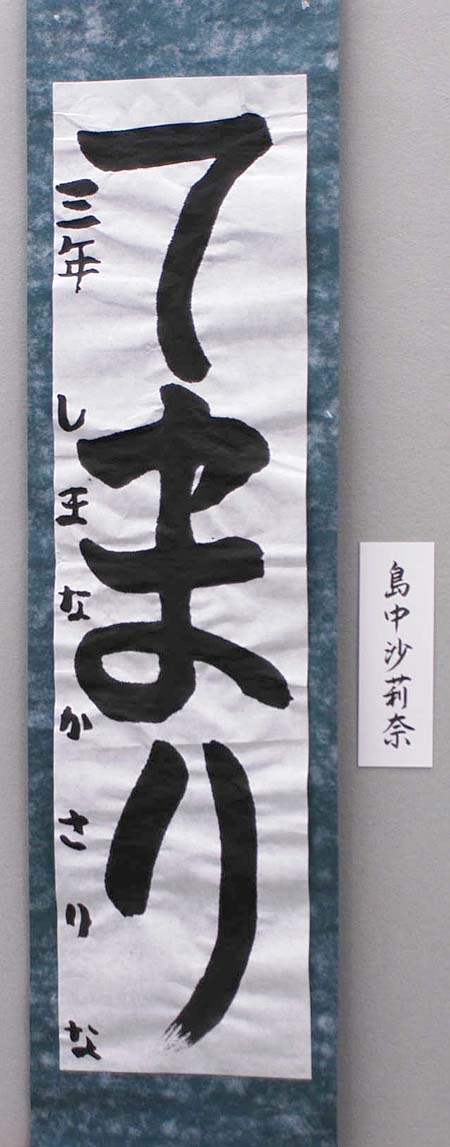 てまり
三年 しまなかさりな
島中沙莉奈